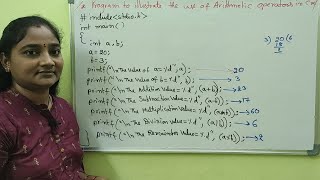 a Program to illustrate the use of Arithmetic operators in C
# include<stdio.h>
int main()
{
int a, b;
a = 20;
b = 3;
printf("\n The value of a = %d", a); → 20
printf("\n The value of b = %d", b); → 3
printf("\n The Addition value = %d", (a+b)); → 23
printf("\n The Subtraction value = %d", (a-b)); → 17
printf("\n The Multiplication value = %d", (a*b)); → 60
printf("\n The Division value = %d", (a/b)); → 6
printf("\n The Remainder value = %d", (a%b)); → 2
}
3) 20 (6
18
2